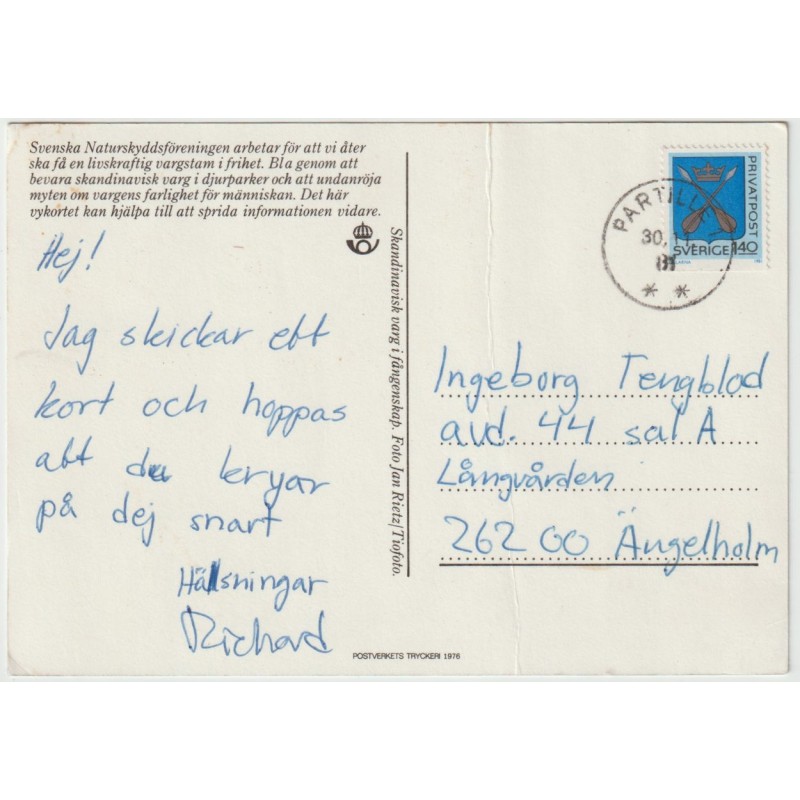 Svenska Naturskyddsföreningen arbetar för att vi åter
ska få en livskraftig vargstam i frihet. Bl a genom att
bevara skandinavisk varg i djurparker och att undanröja
myten om vargens farlighet för människan. Det här
vykortet kan hjälpa till att sprida informationen vidare.
Hej!
Jag skickar ett
kort och hoppas
att du kryar
på dej snart
Hälsningar
Richard
Skandinavisk varg i fångenskap. Foto Jan Rietz/Tiofoto.
POSTVERKETS TRYCKERI 1976
PARTILLE 1
30.11
81
* *
PRIVATPOST
SVERIGE 140
Ingeborg Tengblad
avd. 44 sal A
Långvården
262 00 Ängelholm